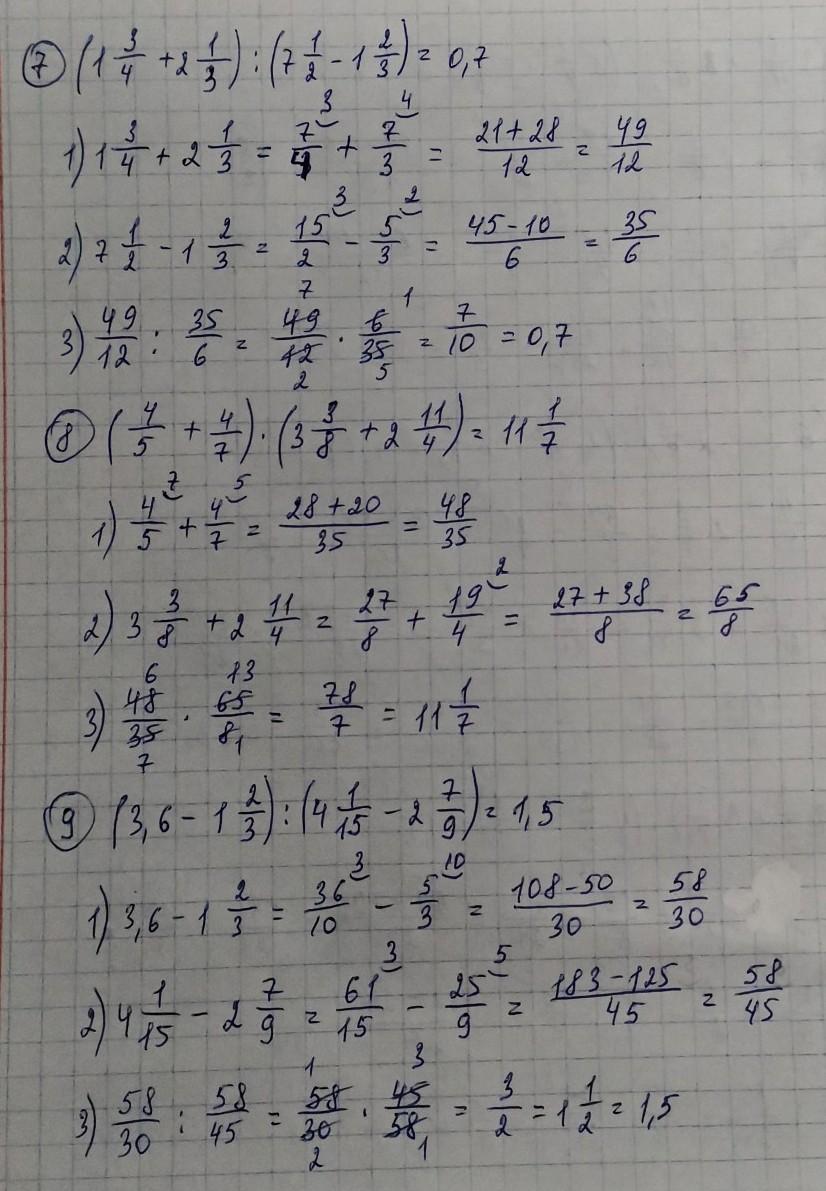 7 (1 3/4 + 2 1/3) : (7 1/2 - 1 2/3) = 0,7
1) 1 3/4 + 2 1/3 = 7/4 ³ + 7/3 ⁴ = (21+28)/12 = 49/12
2) 7 1/2 - 1 2/3 = 15/2 ³ - 5/3 ² = (45-10)/6 = 35/6
3) 49/12 : 35/6 = 49/12 · 6/35 = 7/10 = 0,7
7 1
2 5
8 (4/5 + 4/7) · (3 3/8 + 2 11/4) = 11 1/7
1) 4/5 ⁷ + 4/7 ⁵ = (28+20)/35 = 48/35
2) 3 3/8 + 2 11/4 = 27/8 + 19/4 ² = (27+38)/8 = 65/8
6 13
3) 48/35 · 65/8 = 78/7 = 11 1/7
7 1
9 (3,6 - 1 2/3) : (4 1/15 - 2 7/9) = 1,5
1) 3,6 - 1 2/3 = 36/10 ³ - 5/3 ¹⁰ = (108-50)/30 = 58/30
2) 4 1/15 - 2 7/9 = 61/15 ³ - 25/9 ⁵ = (183-125)/45 = 58/45
1 3
3) 58/30 : 58/45 = 58/30 · 45/58 = 3/2 = 1 1/2 = 1,5
2 1